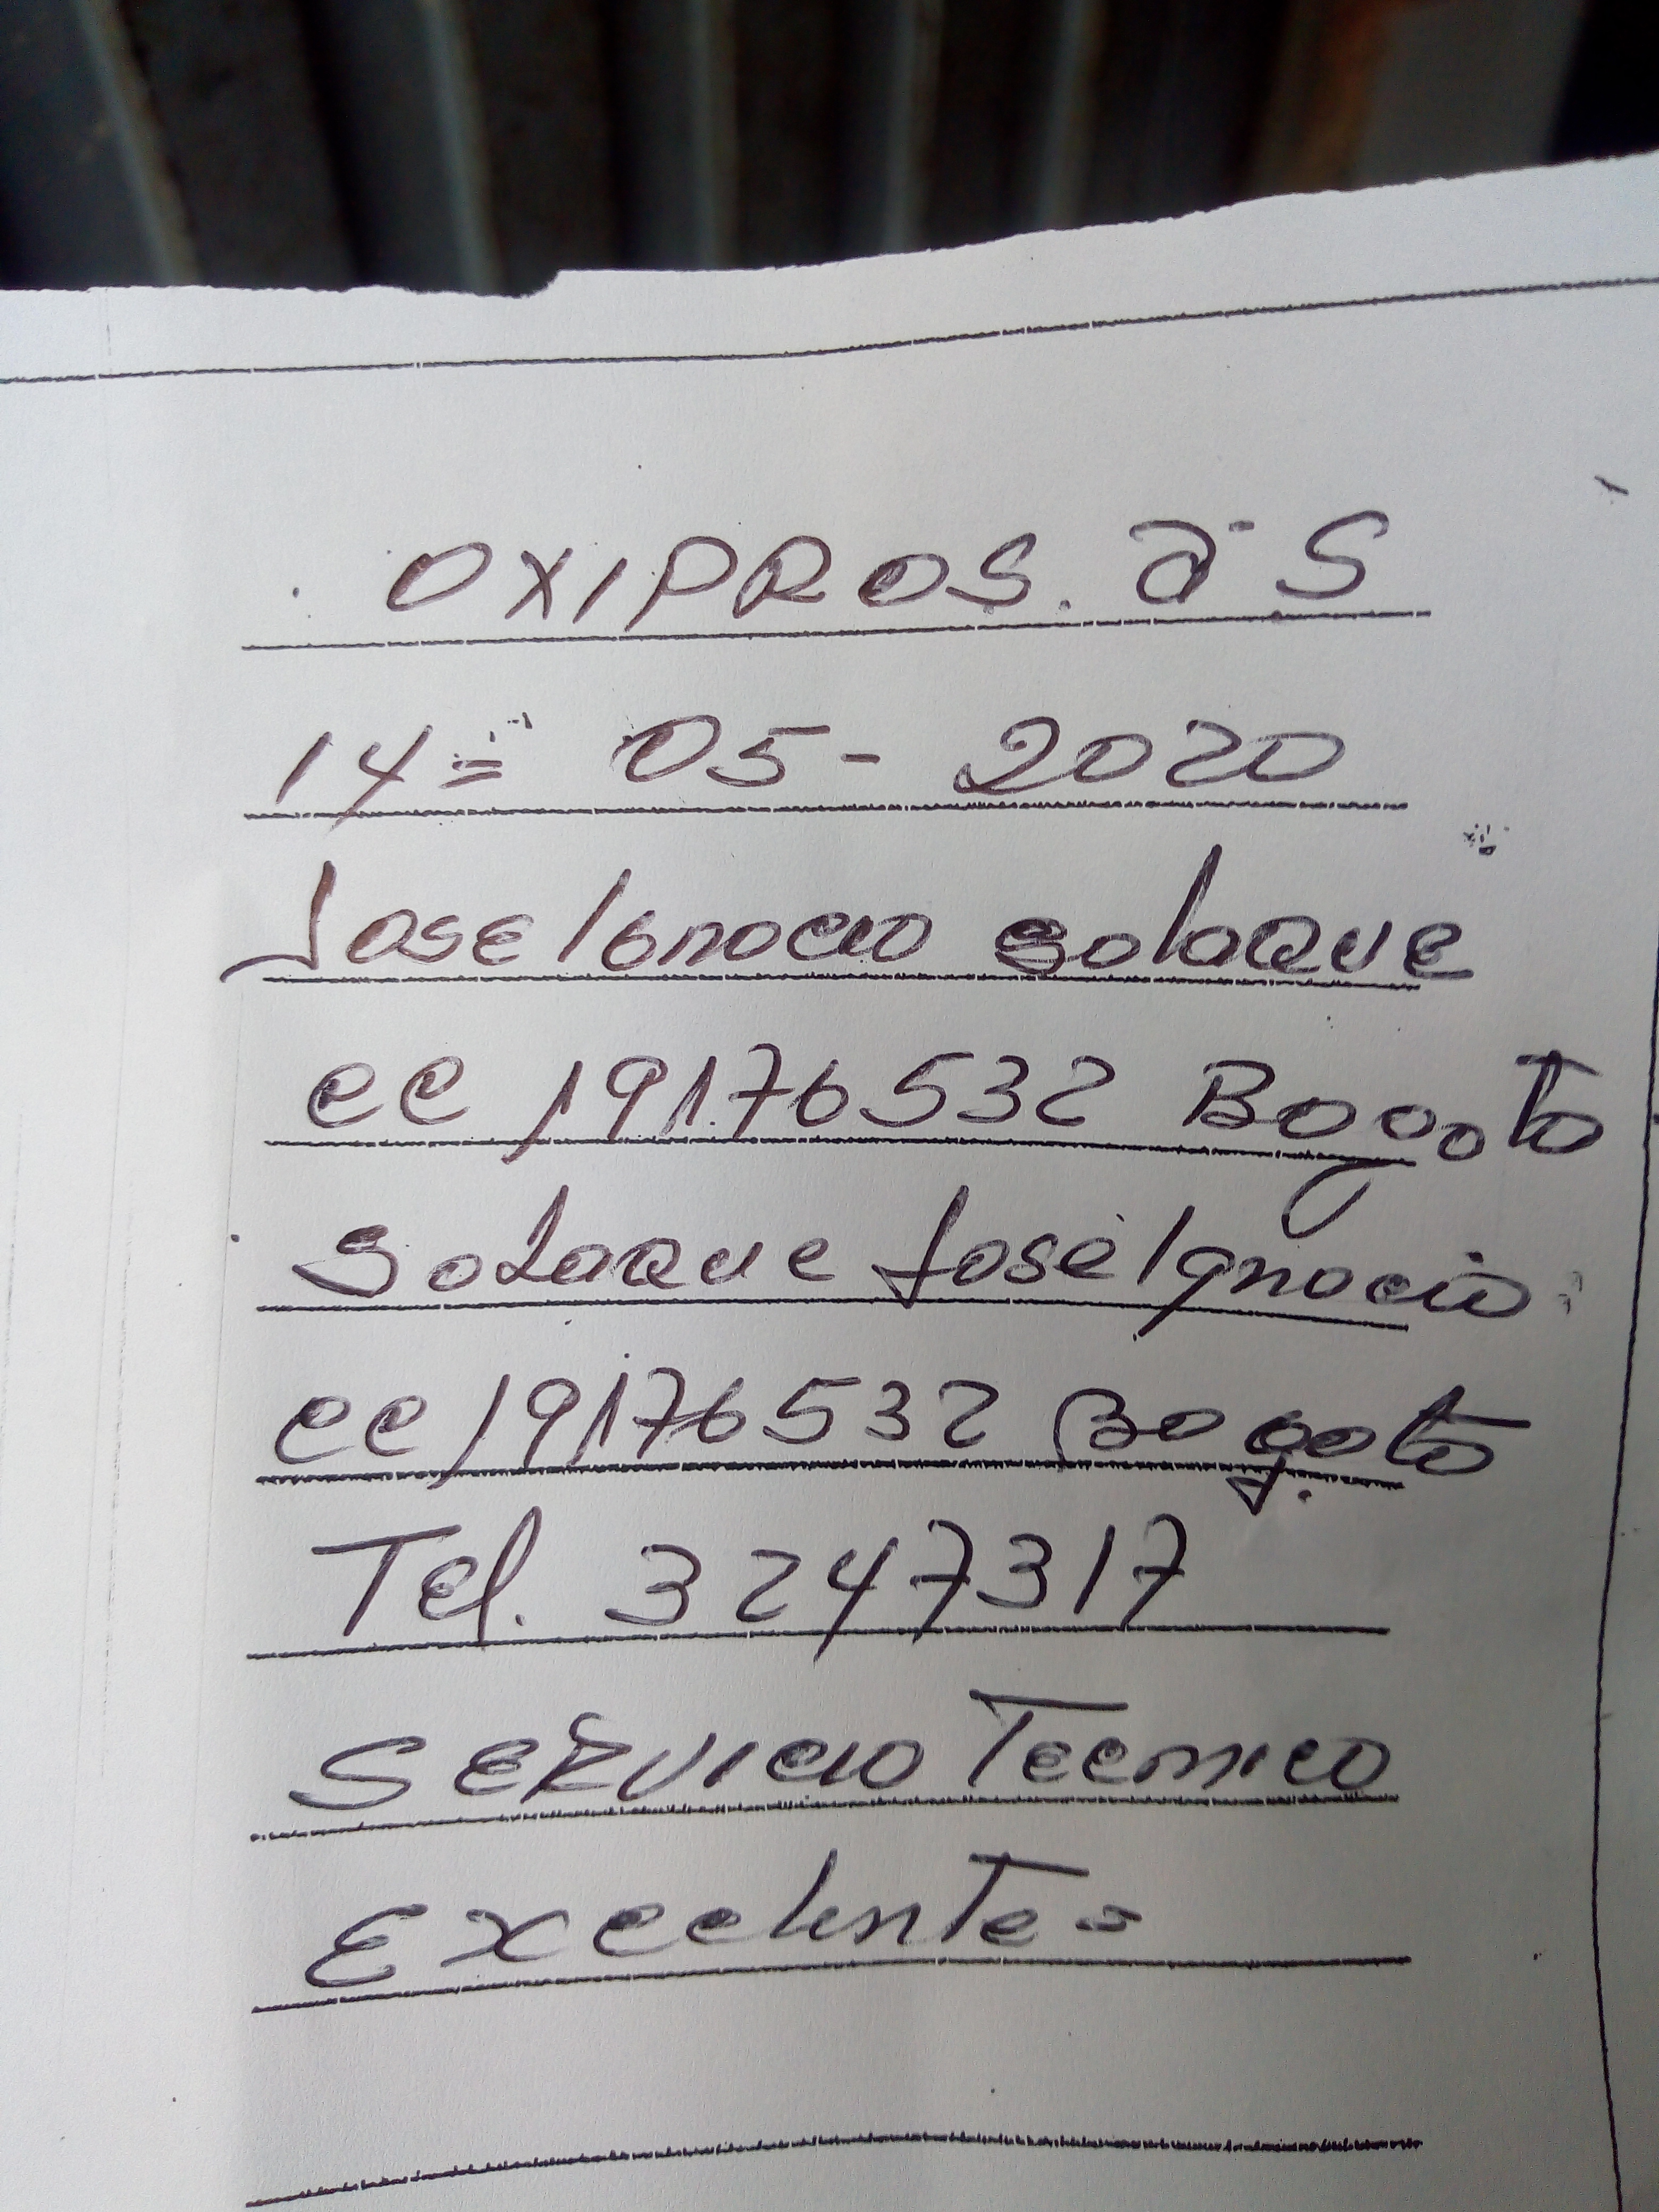 OXIPROS. a S
14= 05- 2020
Jose Ignacio Solaque
CC 19176532 Bogota
Solaque José Ignacio
CC 19176532 Bogota
Tel. 3247317
Servicio Tecnico
Excelente =